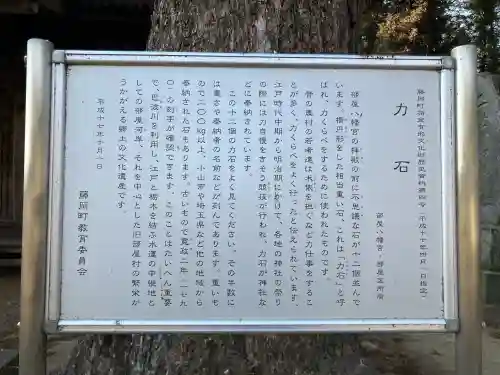 藤岡町指定有形文化財歴史資料第四号（平成十七年四月一日指定）
力　石
部屋八幡宮・部屋正所有
部屋八幡宮の拝殿の前に不思議な石が十二個並んで
います。楕円形をした相当重い石、これは「力石」と呼
ばれ、力くらべをするために使われたものです。
昔の農村の若者達は米俵を担ぐなど力仕事をするこ
とが多く、力くらべをよく行ったと伝えられています。
江戸時代中期から明治期にかけて、各地の神社の祭り
の際には力自慢をきそう競技が行われ、力石が神社な
どに奉納されています。
この十二個の力石をよく見てください。その半数に
は重さや奉納者の名前などが刻んであります。重いも
ので二〇〇kg以上、小山市や埼玉県など他の地域から
奉納された石もあります。古いもので寛政二年（一七九
〇）の刻字が確認できます。このことはたいへん重要
で、巴波川を利用し、江戸と栃木を結ぶ水運の中継地と
しての部屋河岸、それを中心とした旧部屋村の繁栄が
うかがえる郷土の文化遺産です。
平成十七年十月一日
藤岡町教育委員会